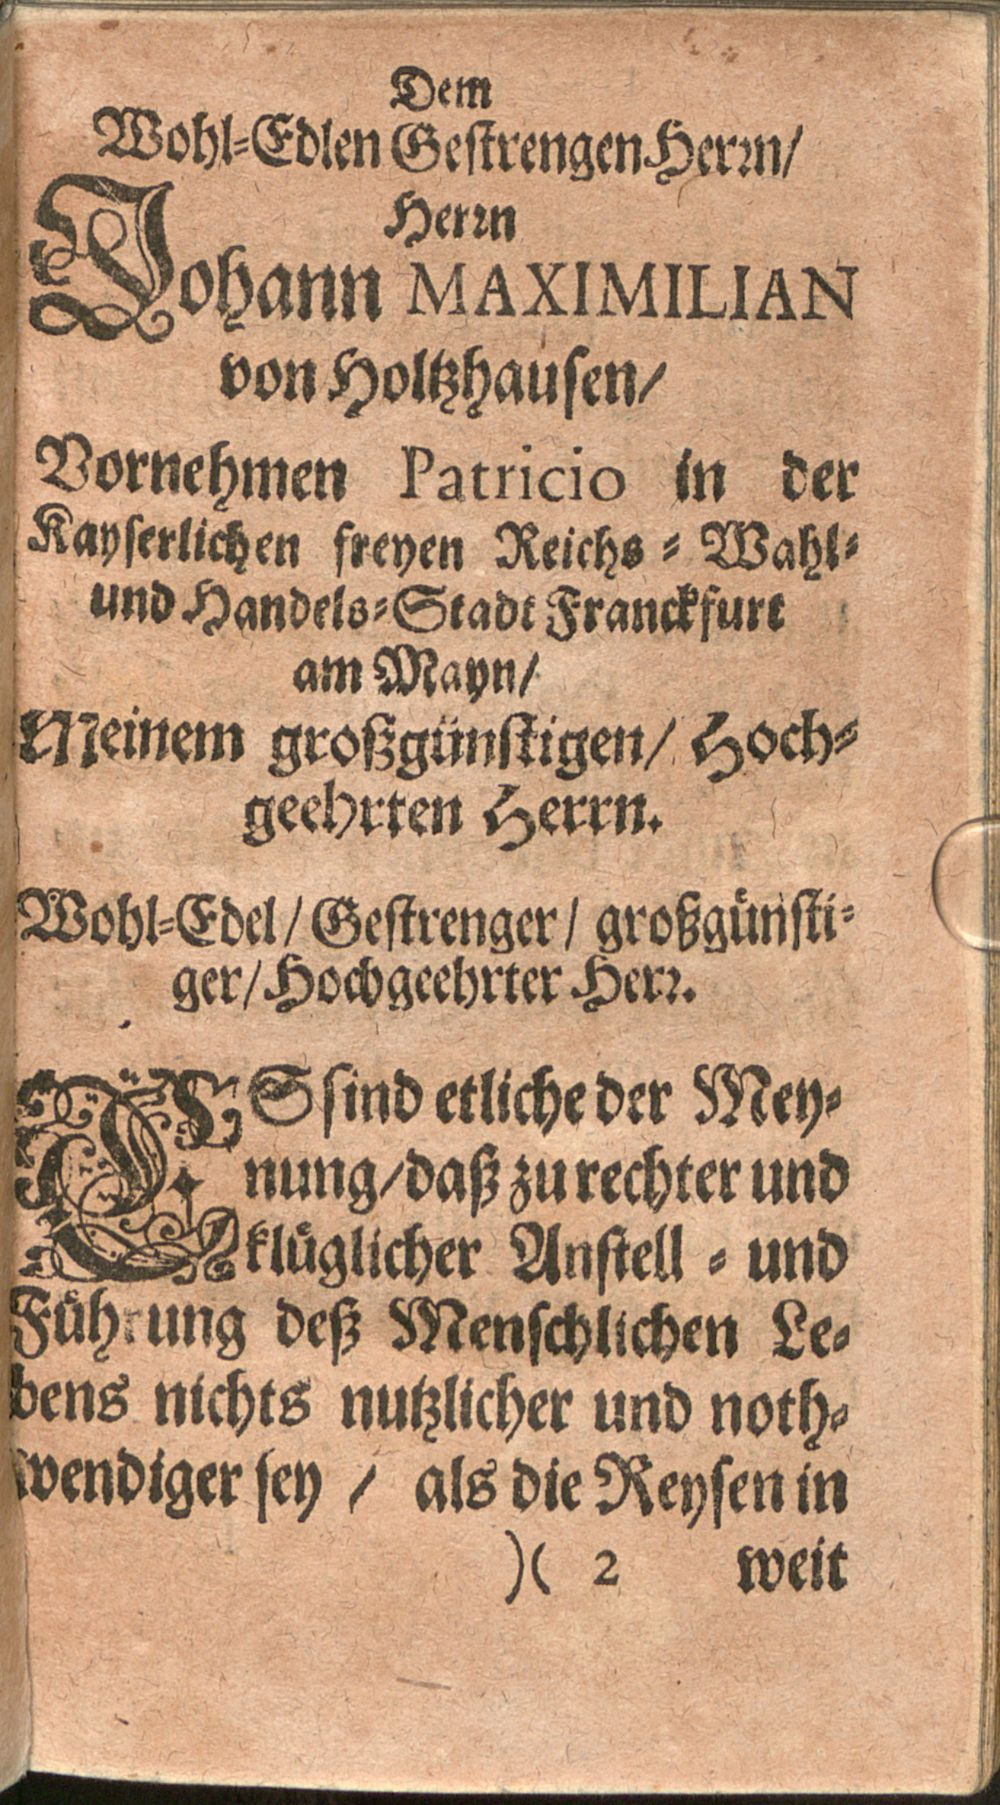 Dem
Wohl-Edlen Gestrengen Herrn/
Herrn
Johann MAXIMILIAN
von Holtzhausen/
Vornehmen Patricio in der
Kayserlichen freyen Reichs-Wahl-
und Handels-Stadt Franckfurt
am Mayn/
Meinem großgünstigen/ Hoch-
geehrten Herrn.
Wohl-Edel/ Gestrenger/ großgünsti-
ger/ Hochgeehrter Herr.
ES sind etliche der Mey-
nung/ daß zu rechter und
klüglicher Anstell- und
Führung deß Menschlichen Le-
bens nichts nutzlicher und noth-
wendiger sey / als die Reysen in
)( 2 weit